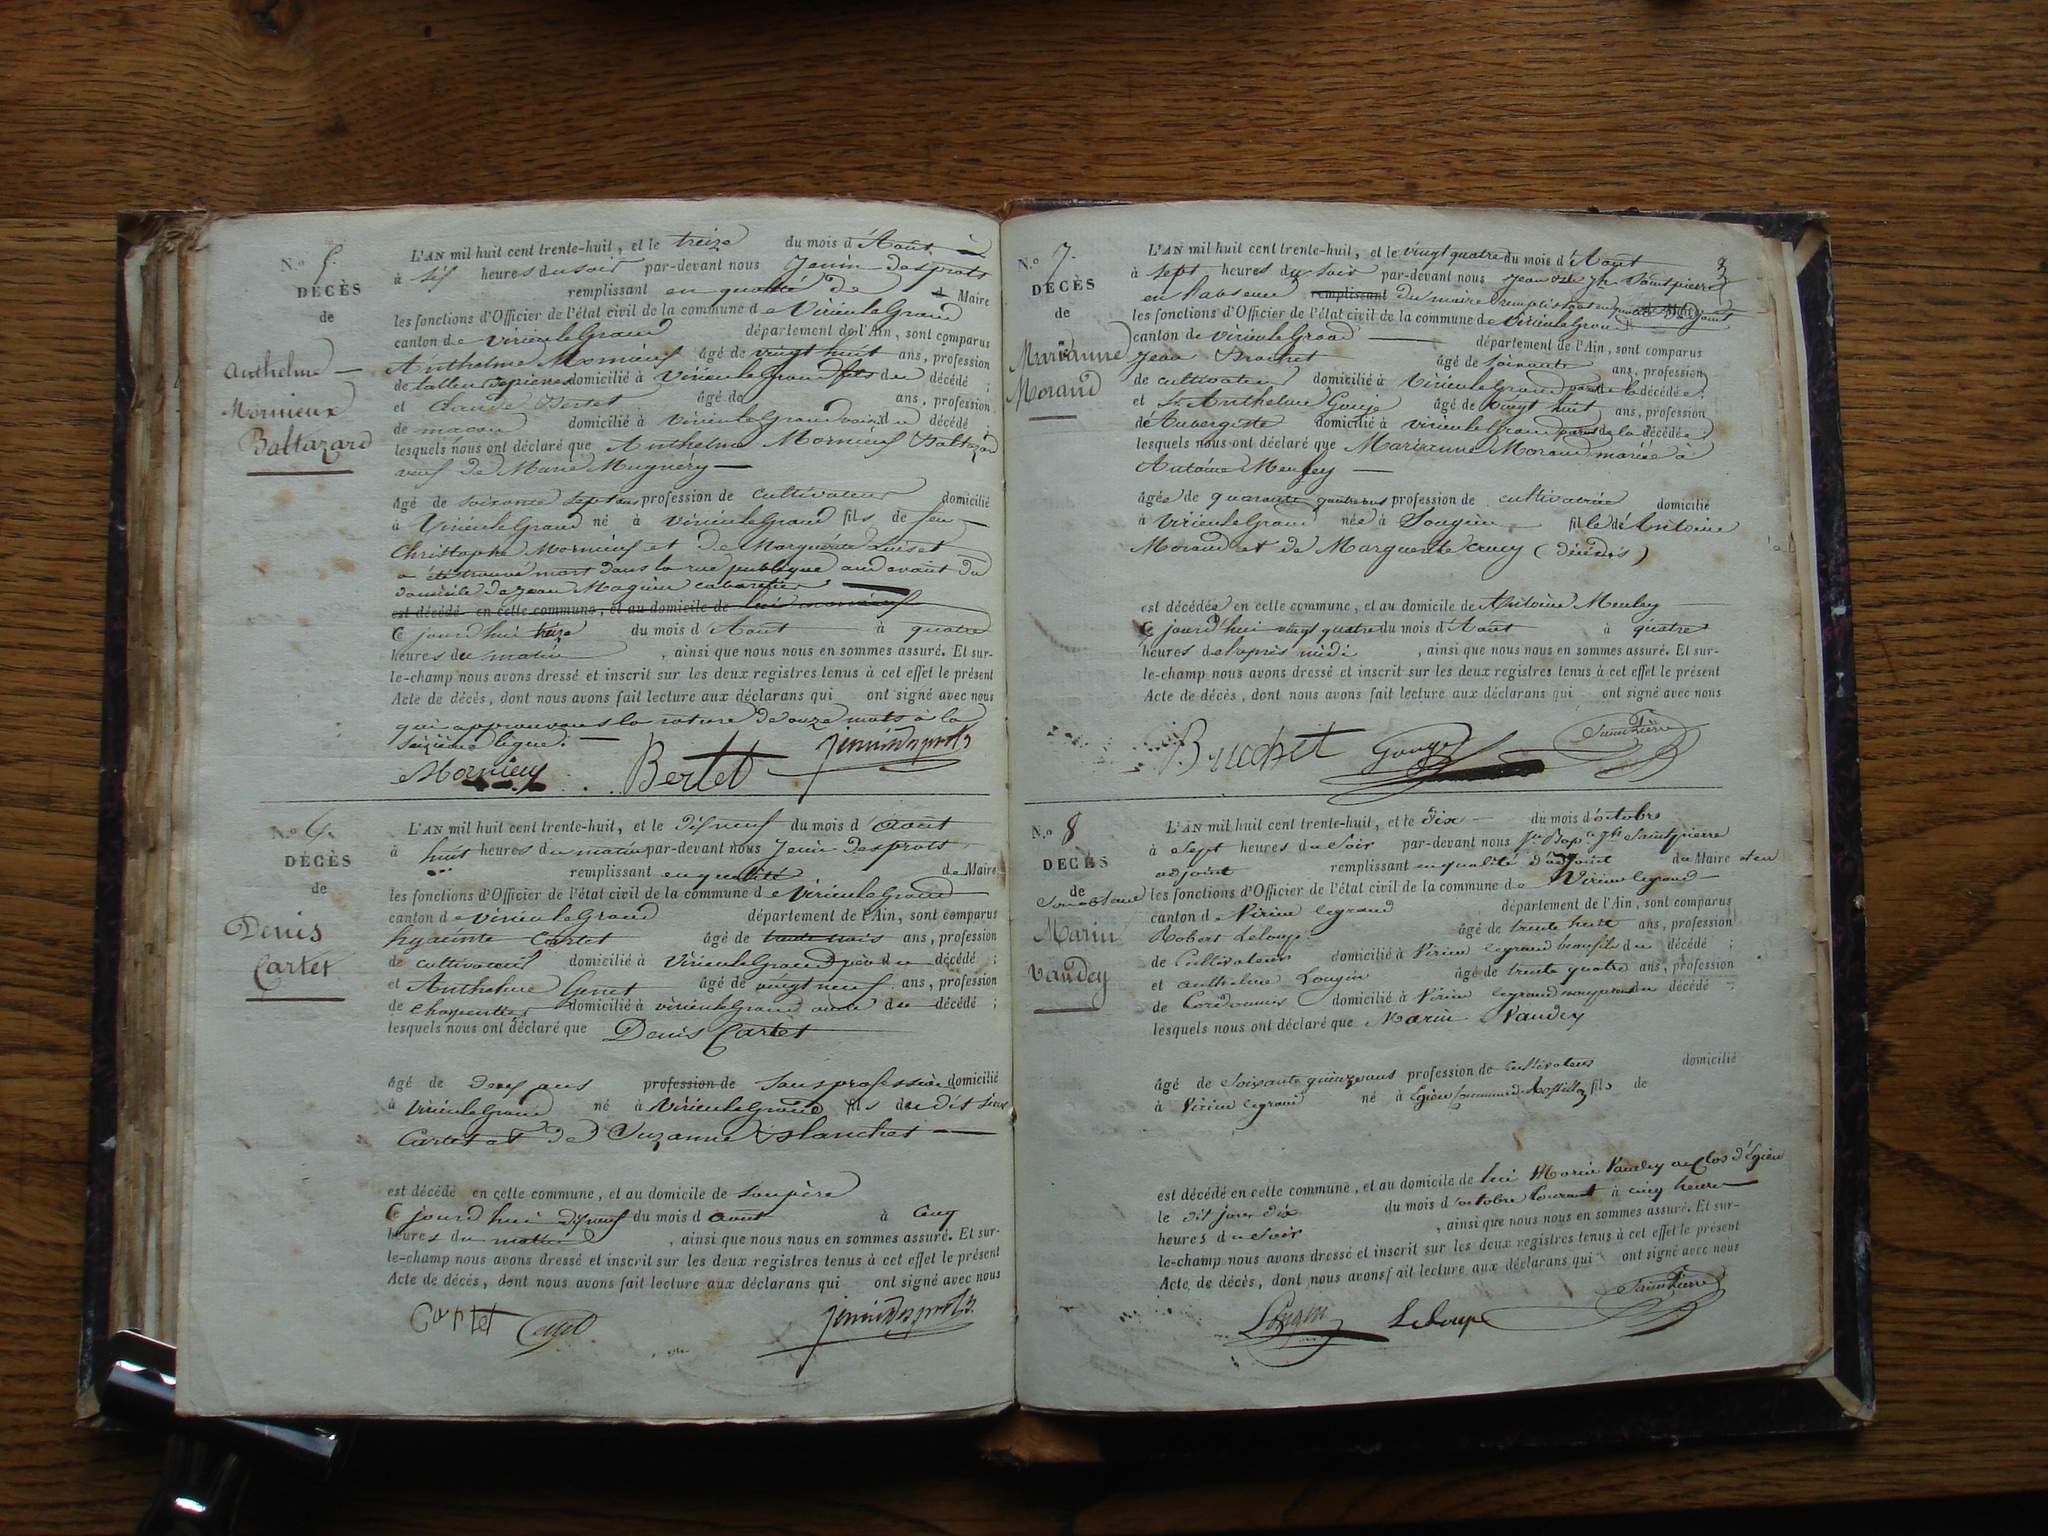 N.o 5.
DÉCÈS
de
Anthelme
Mornieux
Baltazard
L'AN mil huit cent trente-huit, et le treize du mois d'Août à
à six heures du soir par-devant nous Jenin Desprots
remplissant en qualité de d Maire
les fonctions d'Officier de l'état civil de la commune de Virieu le Grand
canton de Virieu le Grand département de l'Ain, sont comparus
Anthelme Mornieux âgé de vingt huit ans, profession
de tailleur de pierres domicilié à Virieu le Grand fils du décédé ;
et Claude Bertet âgé de ans, profession
de maçon domicilié à Virieu le Grand voisin du décédé ;
lesquels nous ont déclaré que Anthelme Mornieux Baltazard
veuf de Marie Mugnéry
âgé de soixante sept ans profession de cultivateur domicilié
à Virieu le Grand né à Virieu le Grand fils de feu
Christophe Mornieux et de Marguerite Luiset
a été trouvé mort dans la rue publique au devant du
domicile de Jean Magnin cabaretier
est décédé en cette commune, et au domicile de lui Mornieux
Ce jourd'hui treize du mois d'Août à quatre
heures du matin, ainsi que nous nous en sommes assuré. Et sur-
le-champ nous avons dressé et inscrit sur les deux registres tenus à cet effet le présent
Acte de décès, dont nous avons fait lecture aux déclarans qui ont signé avec nous
qui approuvons la rature de onze mots à la
seizième ligne.
Mornieux Bertet Jenindesprots
N.o 6.
DÉCÈS
de
Denis
Cartet
L'AN mil huit cent trente-huit, et le dix neuf du mois d'août
à huit heures du matin par-devant nous Jenin Desprots
remplissant en qualité de Maire
les fonctions d'Officier de l'état civil de la commune de Virieu le Grand
canton de Virieu le Grand département de l'Ain, sont comparus
hyacinte Cartet âgé de trente trois ans, profession
de cultivateur domicilié à Virieu le Grand père du décédé ;
et Anthelme Genet âgé de vingt neuf ans, profession
de charpentier domicilié à Virieu le Grand oncle du décédé ;
lesquels nous ont déclaré que Denis Cartet
âgé de deux ans profession de sans profession domicilié
à Virieu le Grand né à Virieu le Grand fils du dit sieur
Cartet et de Suzanne Blanchet
est décédé en cette commune, et au domicile de son père
Ce jourd'hui dix neuf du mois d août à cinq
heures du matin, ainsi que nous nous en sommes assuré. Et sur-
le-champ nous avons dressé et inscrit sur les deux registres tenus à cet effet le présent
Acte de décès, dont nous avons fait lecture aux déclarans qui ont signé avec nous
Cartet Jenindesprots
N.o 7.
DÉCÈS
de
Marianne
Morand
L'AN mil huit cent trente-huit, et le vingt quatre du mois d'Août
à sept heures du soir par-devant nous Jean Saintpierre
en l'absence remplissant du maire remplissant en qualité d'adjoint
les fonctions d'Officier de l'état civil de la commune de Virieu le Grand
canton de Virieu le Grand département de l'Ain, sont comparus
Jean Brochet âgé de soixante ans, profession
de cultivateur domicilié à Virieu le Grand de la décédée ;
et Anthelme Gonje âgé de vingt huit ans, profession
d'Aubergiste domicilié à Virieu le Grand de la décédée ;
lesquels nous ont déclaré que Marianne Morand mariée à
Antoine Meuley
âgée de quarante quatre ans profession de cultivatrice domicilié
à Virieu le Grand née à Songieu fille de Antoine
Morand et de Marguerite Cruey (décédés)
est décédée en cette commune, et au domicile de Antoine Meuley
Ce jourd'hui vingt quatre du mois d'Août à quatre
heures de l'après midi, ainsi que nous nous en sommes assuré. Et sur-
le-champ nous avons dressé et inscrit sur les deux registres tenus à cet effet le présent
Acte de décès, dont nous avons fait lecture aux déclarans qui ont signé avec nous
Bruchet Gonge SaintPierre
N.o 8
DÉCÈS
de
Marin
Vaudey
L'AN mil huit cent trente-huit, et le dix du mois d'octobre
à sept heures du soir par-devant nous Jn Bap. Jh Saintpierre
adjoint remplissant en qualité d'adjoint du Maire
les fonctions d'Officier de l'état civil de la commune de Virieu legrand
canton de Virieu legrand département de l'Ain, sont comparus
Robert Leloup âgé de trente huit ans, profession
de Cultivateur domicilié à Virieu legrand beaufils du décédé ;
et anthelme Lougin âgé de trente quatre ans, profession
de Cordonnier domicilié à Virieu legrand non parent du décédé ;
lesquels nous ont déclaré que Marin Vaudey
âgé de soixante quinze ans profession de cultivateur domicilié
à Virieu legrand né à Egieu Commune de Rossillon fils de
est décédé en cette commune, et au domicile de lui Marin Vaudey au Clos d'Egieu
le dit jour dix du mois d'octobre courant à cinq heures
heures du soir, ainsi que nous nous en sommes assuré. Et sur-
le-champ nous avons dressé et inscrit sur les deux registres tenus à cet effet le présent
Acte de décès, dont nous avons fait lecture aux déclarans qui ont signé avec nous
Lougin Leloup SaintPierre